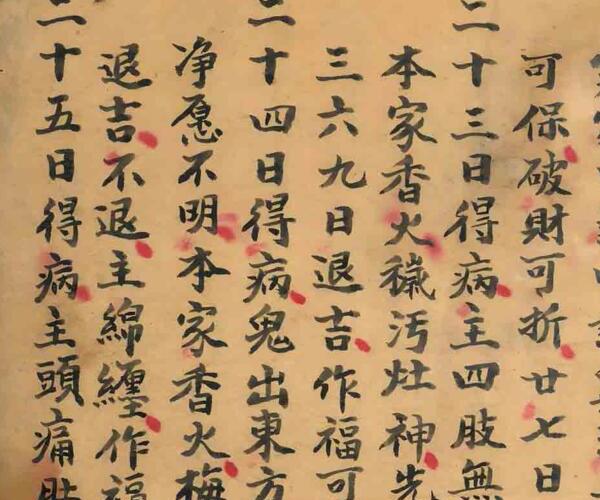 可保破財可折廿七日
二十三日得病主四肢無
本家香火穢污灶神
三六九日退吉作福可
二十四日得病鬼出東方
净愿不明本家香火
退吉不退主綿纏作福
二十五日得病主頭痛